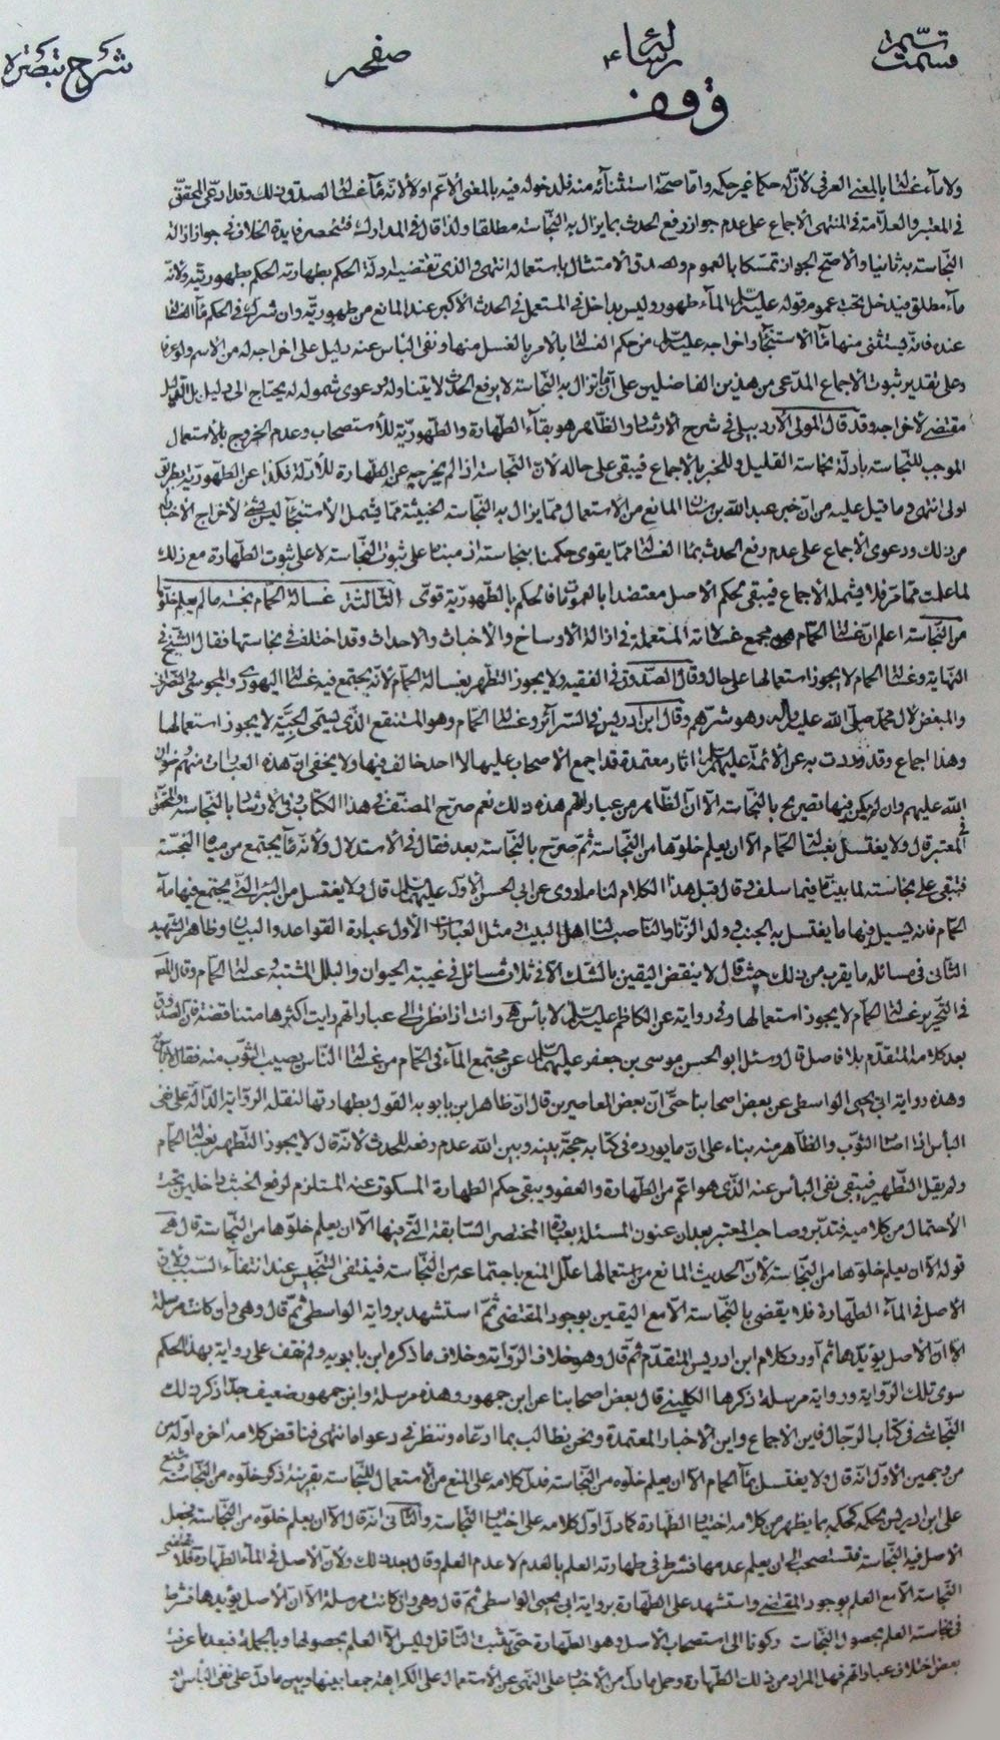 شرح تبصرة
صفحه
وقف
ولا ماء غسالة بالمعنى العرفي لأن له حكما غير حكمه واما صحة استثنائه منه فلدخوله فيه بالمعنى الأعم اولا لانه ماء غسالة لصدق ذلك وقد ادعى المحقق
في المعتبر والعلامة في المنتهى الاجماع على عدم جواز رفع الحدث بما يزال به النجاسة مطلقا ولذا قال في المدارك فتنحصر فايدة الخلاف في جواز ازالة
النجاسة به ثانيا والأصح الجواز تمسكا بالعموم ولصدق الامتثال باستعماله انتهى والذي تقتضيه ادلة الحكم بطهارته الحكم بطهوريته ولانه
ماء مطلق فيدخل تحت عموم قوله عليه السلام الماء طهور وليس بداخل في المستعمل في الحدث الأكبر عند المانع من طهوريته وان شرك في الحكم ماء الغسالة
عنده فانه يستثنى منها ماء الاستنجاء واخراجه عليه السلام من حكم الغسالة بالأمر بالغسل منها ونفى البأس عنه دليل على اخراجه له من الاسم ولو عرفا
وعلى تقدير ثبوت الاجماع المدعى من هذين الفاضلين على ان ما يزال به النجاسة لا يرفع الحدث لا يتناوله ودعوى شموله له يحتاج الى دليل بل
مقتضى لاخراجه وقد قال المولى الأردبيلي في شرح الارشاد والظاهر هو بقاء الطهارة والطهورية للأستصحاب وعدم الخروج بالاستعمال
الموجب للنجاسة بأدلة نجاسة القليل وللخبر بالاجماع فيبقى على حاله لأن النجاسة اذا لم يخرجه عن الطهارة للأدلة فكذا عن الطهورية بطريق
اولى انتهى وما قيل عليه من ان خبر عبد الله بن سنان المانع من الاستعمال مما يزال به النجاسة الخبيثة مما يشمل الأستنجاء ليس بشيء لأخراج الأخبار
من ذلك ودعوى الاجماع على عدم رفع الحدث بماء الغسالة مما يقوى حكمنا بنجاسته اذ مبناه على ثبوت النجاسة لا على ثبوت الطهارة مع ذلك
لما علمت مما مر فلا يشمله الاجماع فيبقى بحكم الأصل معتضدا بالعمومات فالحكم بالطهورية قوي الثالثة غسالة الحمام نجسة ما لم يعلم خلوها
من النجاسة اعلم ان غسالة الحمام هي مجمع غسالاته المستعملة في ازالة الأوساخ والأخباث والاحداث وقد اختلف في نجاستها فقال الشيخ في
النهاية وغسالة الحمام لا يجوز استعمالها على حال وقال الصدوق في الفقيه ولا يجوز التطهر بغسالة الحمام لأنه يجتمع فيه غسالة اليهودي والمجوسي والنصراني
والمبغض لآل محمد صلى الله عليه وآله وهو شرهم وقال ابن ادريس في السرائر وغسالة الحمام وهو المستنقع الذي يسمى الجية لا يجوز استعمالها
وهذا اجماع وقد وردت به عن الأئمة عليهم السلام اثار معتمدة قد اجمع الأصحاب عليها لا احد خالف فيها ولا يخفى ان هذه العبارات منهم رضوان
الله عليهم وان لم يكن فيها تصريح بالنجاسة الا ان الظاهر من عباراتهم هذه ذلك نعم صرح المصنف في هذا الكتاب وفي الارشاد بالنجاسة والمحقق
في المعتبر قال ولا يغتسل بغسالة الحمام الا ان يعلم خلوها من النجاسة ثم صرح بالنجاسة بعد فقال في الأستدلال ولأنه ماء يجتمع من مياه النجسة
فتبقى على نجاسته لما بيناه فيما سلف وقال قبل هذا الكلام لنا ما روى عن ابي الحسن الأول عليه السلام قال ولا يغتسل من البئر التي يجتمع فيها ماء
الحمام فانه يسيل فيها ما يغتسل به الجنب وولد الزنا والناصب لنا اهل البيت ومثل العبارات الأول عبارة القواعد والبيان وظاهر الشهيد
الثاني في مسائله ما يقرب من ذلك حيث قال لا ينقض اليقين بالشك الا في ثلاث مسائل في غيبة الحيوان والبلل المشتبه وغسالة الحمام وقال
في التحرير غسالة الحمام لا يجوز استعمالها وفي رواية عن الكاظم عليه السلام لا بأس هي وانت اذا نظرت الى عباراتهم رايت اكثرها متناقضة فان الصدوق
بعد كلامه المتقدم بلا فاصل قال وسئل ابو الحسن موسى بن جعفر عليهما السلام عن مجتمع الماء في الحمام من غسالة الناس يصيب الثوب منه فقال لا بأس
وهذه رواية ابي يحيى الواسطي عن بعض اصحابنا حتى ان بعض المعاصرين قال ان ظاهر ابن بابويه القول بطهارتها لنقله الرواية الدالة على نفى
البأس اذا اصاب الثوب والظاهر منه بناء على ان ما يورده في كتابه حجة بينه وبين الله عدم رفعه للحدث لأنه قال لا يجوز التطهر بغسالة الحمام
ولم يقل التطهير فيبقى نفى البأس عنه الذي هو اعم من الطهارة والعفو ويبقى حكم الطهارة المسكوت عنه المستلزم لرفع الخبث داخلين تحت
الأحتمال من كلاميه فتدبر وصاحب المعتبر بعد ان عنون المسئلة بعبارة المختصر السابقة التي فيها الا ان يعلم خلوها من النجاسة قال هي
قوله الا ان يعلم خلوها من النجاسة لأن الحديث المانع من استعمالها علل المنع باجتماعه من النجاسة فينتفى التنجيس عند انتفاء السبب ولان
الاصل في الماء الطهارة فلا يقضى بالنجاسة الا مع اليقين بوجود المقتضى ثم استشهد برواية الواسطي ثم قال وهي وان كانت مرسلة
الا ان الأصل يؤيدها ثم اورد كلام ابن ادريس المتقدم ثم قال وهو خلاف الرواية وخلاف ما ذكره ابن بابويه ولم نقف على رواية بهذا الحكم
سوى تلك الرواية ورواية مرسلة ذكرها الكليني قال بعض اصحابنا عن ابن جمهور وهذه مرسلة وابن جمهور ضعيف جدا ذكر ذلك
النجاشي في كتاب الرجال فاين الاجماع واين الأخبار المعتمدة ونحن نطالب بما ادعاه وننظر في دعواه انتهى فناقض كلامه اخره اوله
من وجهين الأول انه قال ولا يغتسل بماء الحمام الا ان يعلم خلوه من النجاسة فدل كلامه على المنع من الاستعمال للنجاسة بقرينة ذكر خلوه من النجاسة شنع
على ابن ادريس بحكمه كحكمه بما يظهر من كلامه اختيار الطهارة كما دل اول كلامه على اختيار النجاسة والثاني انه قال الا ان يعلم خلوه من النجاسة فجعل
الأصل فيه النجاسة فتستصحب الى ان يعلم عدمها فشرط في طهارته العلم بالعدم لا عدم العلم وقال بعد ذلك ولأن الأصل في الماء الطهارة فلا يقتضى
النجاسة الا مع العلم بوجود المقتضى واستشهد على الطهارة برواية ابي يحيى الواسطي ثم قال وهي وان كانت مرسلة الا ان الأصل يؤيدها فشرط
في نجاسته العلم بحصول النجاسات ركونا الى استصحاب الاصل وهو الطهارة حتى يثبت الناقل وليس الا العلم بحصولها وبالجملة فبعد ما عرفت
بعض اختلاف عباراتهم فهل المراد من ذلك الطهارة وحمل ما دل من الأخبار على النهى عن الاستعمال على الكراهة جمعا بينها وبين ما دل على نفى البأس